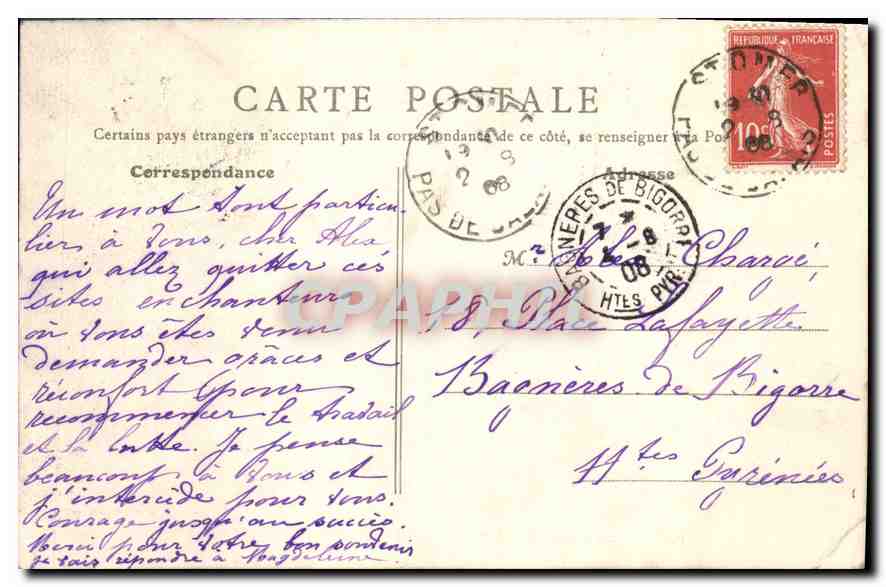 CARTE POSTALE
Certains pays étrangers n'acceptant pas la correspondance de ce côté, se renseigner à la Pos
Correspondance
Adresse
REPUBLIQUE FRANÇAISE
10c
POSTES
ST OMER
19
2 - 8
08
PAS DE CALAIS
19
2 8
08
PAS DE CALAIS
BAGNERES DE BIGORRE
08
HTES PYR
Un mot tout particu-
lier à vous, cher Alex
qui allez quitter ces
sites enchanteurs
où vous êtes venu
demander grâces et
réconfort pour
recommencer le travail
et la lutte. Je pense
beaucoup à vous et
j'intercède pour vous.
Courage jusqu'au succès.
Merci pour votre bon souvenir
je vais répondre à Magdeleine
Mr Alex Charvé
18, Place Lafayette
Bagnères de Bigorre
Htes Pyrénées
CPAPHIL